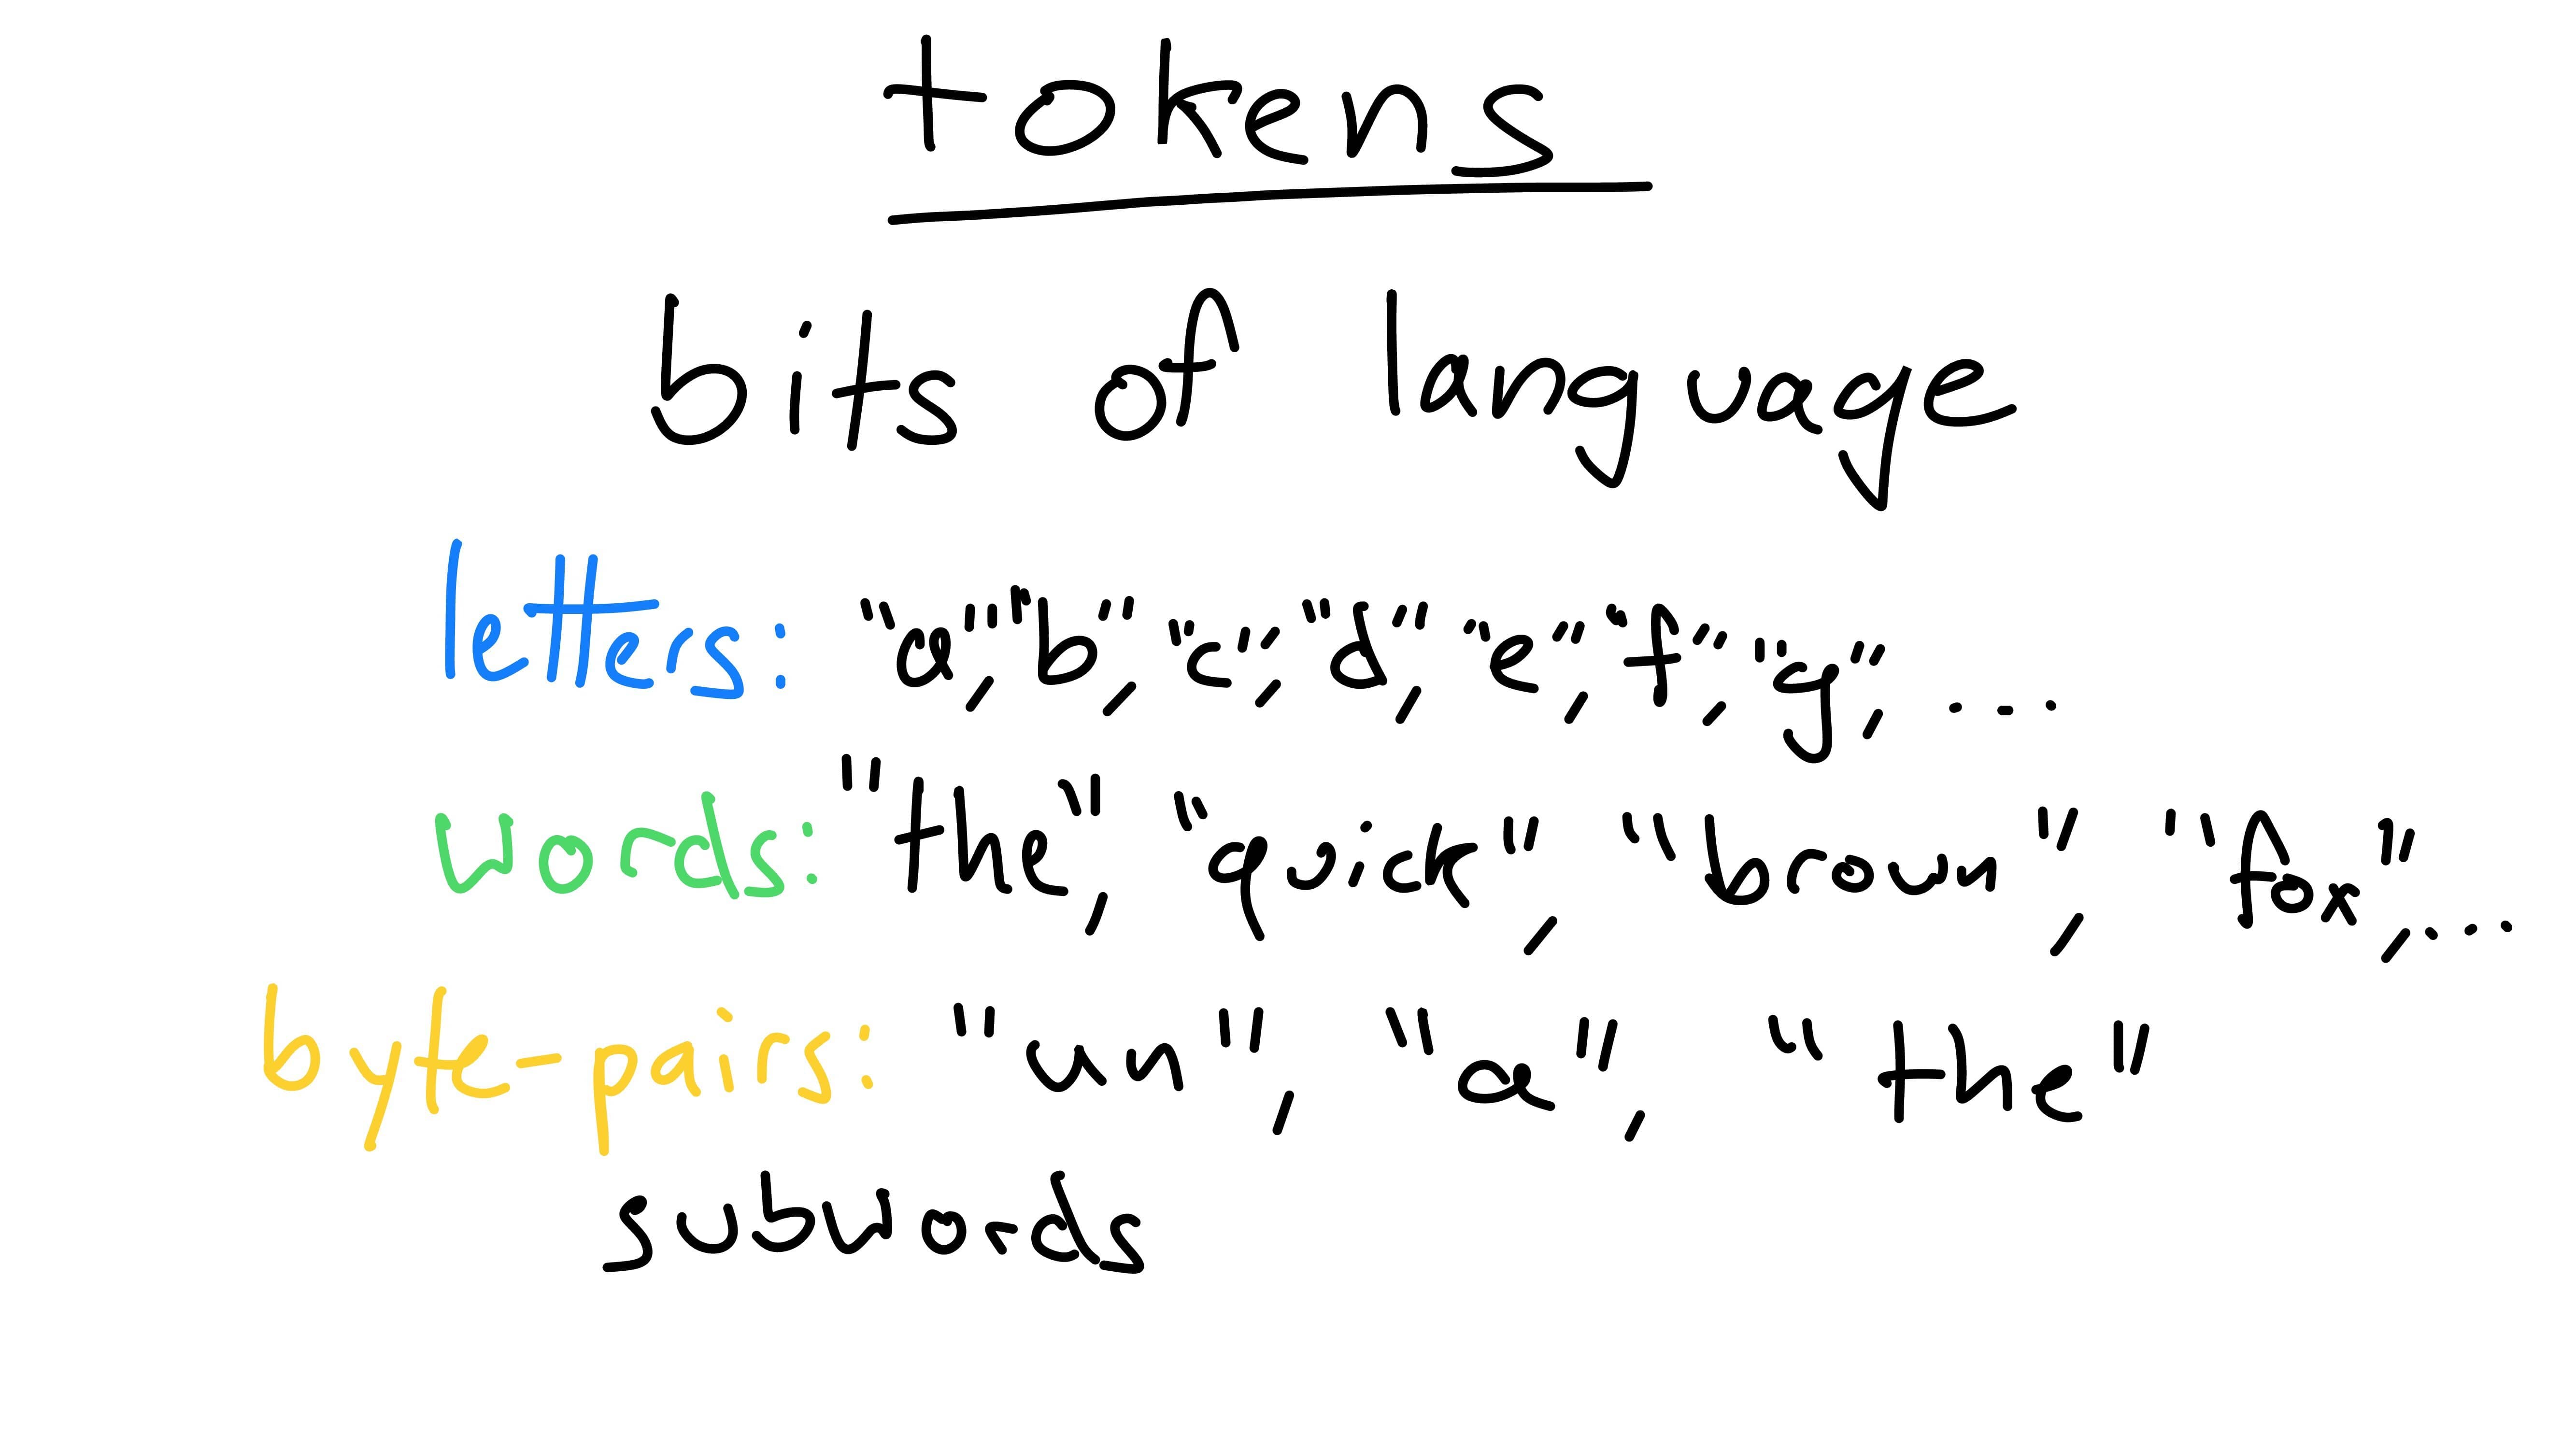 tokens
bits of language
letters: "a", "b", "c", "d", "e", "f", "g", ...
words: "the", "quick", "brown", "fox", ...
byte-pairs: "un", "a", "the"
subwords